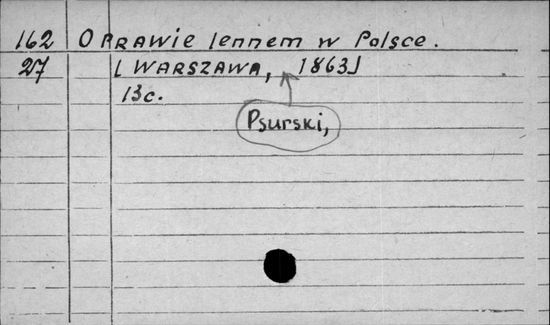 162 O PRAWIE lennem w Polsce.
27 [WARSZAWA, 1863]
13c.
Psurski,